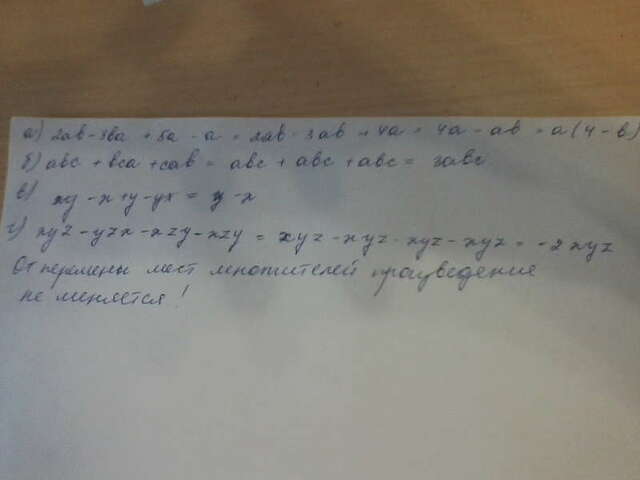 а) 2ab - 3ba + 5a - a = 2ab - 3ab + 4a = 4a - ab = a(4-b)
б) abc + bca + cab = abc + abc + abc = 3abc
в) xy - x + y - yx = y - x
г) xyz - yzx - xzy - xzy = xyz - xyz - xyz - xyz = -2xyz
От перемены мест множителей произведение
не меняется!